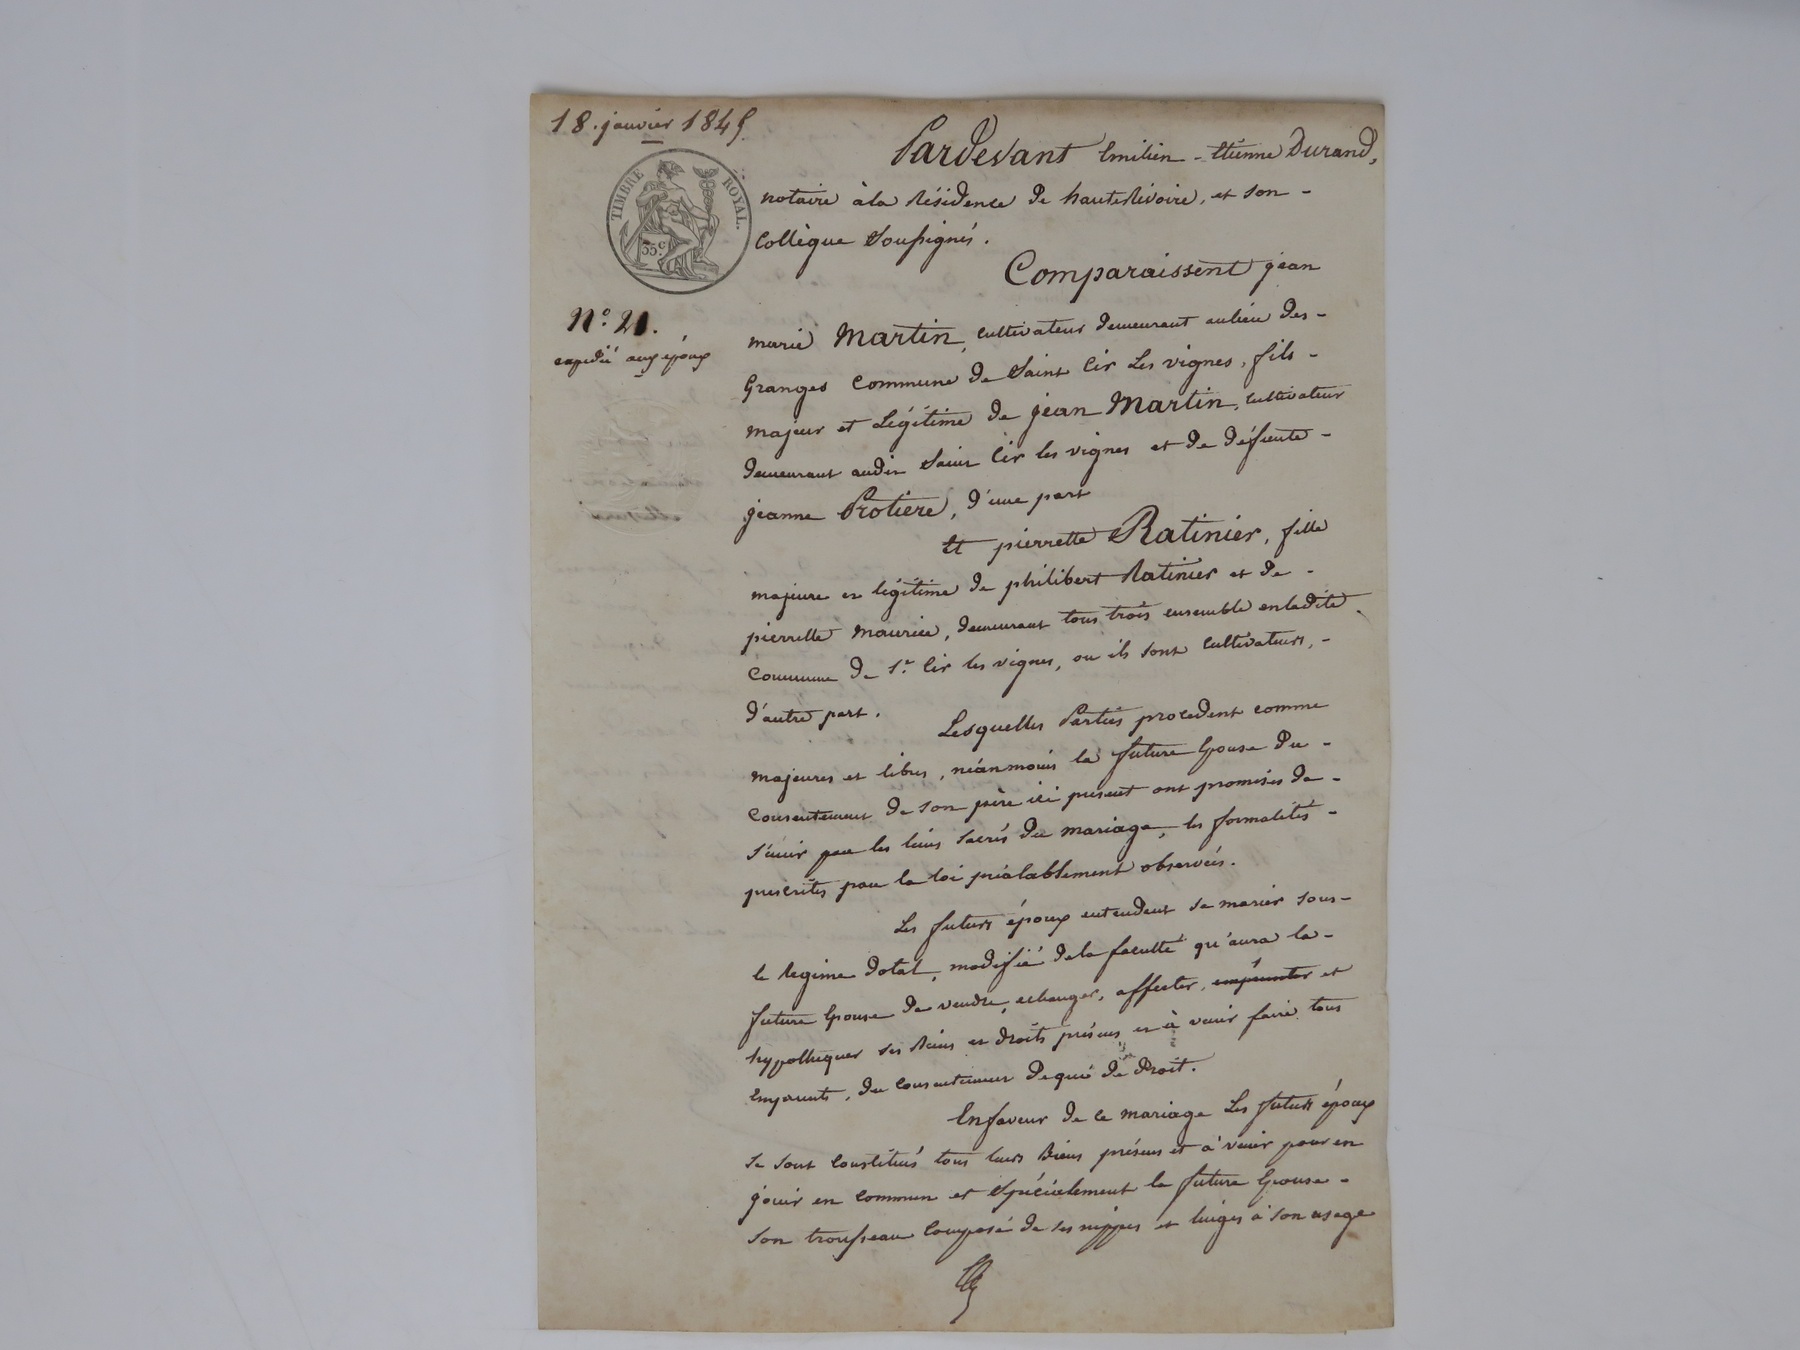 18. janvier 1845
TIMBRE ROYAL.
35 c.
Pardevant Emilien-Etienne Durand,
notaire à la Résidence de hauteRivoire, et son -
Collègue Soussignés.
Comparaissent jean
N.° 21.
expedié aux époux
marie Martin, cultivateur demeurant au lieu des -
Granges Commune de Saint Cir Les vignes, fils -
majeur et Légitime de jean Martin, cultivateur
demeurant audit Saint Cir les vignes et de défunte -
jeanne Protiere, d'une part
Et pierrette Ratinier, fille
majeure et légitime de philibert Ratinier et de -
pierrette maurice, demeurant tous trois ensemble en ladite
Commune de St. Cir les vignes, ou ils sont Cultivateurs, -
d'autre part.
Lesquelles Parties procedent comme
majeures et libres, néanmoins la future Epouse du -
Consentement de son père ici présent ont promises de -
s'unir par les liens sacrés du mariage, les formalités -
prescrites par la loi préalablement observées.
Les futurs époux entendent se marier sous -
le Régime dotal, modifié de la faculté qu'aura la -
future Epouse de vendre, echanger, affecter, emprunter et
hypothequer ses Biens et droits présens et à venir faire tous
Emprunts, du Consentement de qui de Droit.
En faveur de ce mariage Les futurs époux
se sont Constitués tous leurs Biens présens et à venir pour en
jouir en commun et Spécialement la future Epouse -
son trousseau Composé de ses nippes et linges à son usage